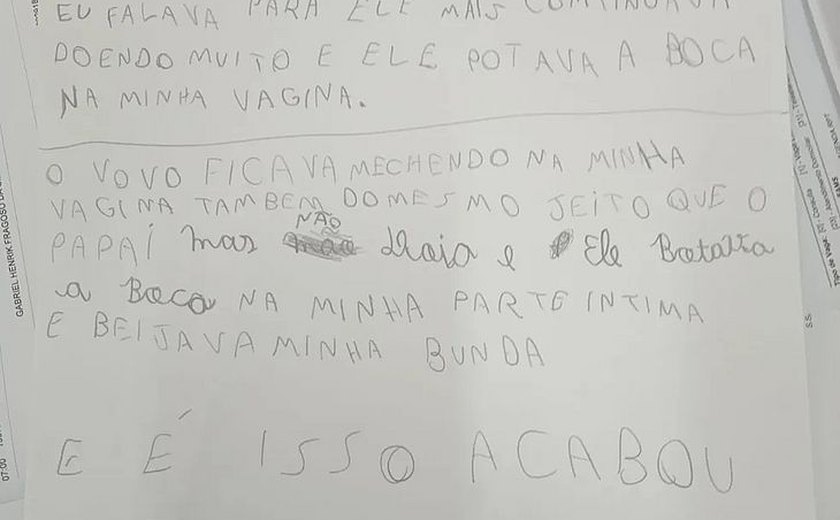 EU FALAVA PARA ELE MAIS CONTINUAVA
DOENDO MUITO E ELE POTAVA A BOCA
NA MINHA VAGINA.
O VOVO FICAVA MECHENDO NA MINHA
VAGINA TAMBEM DO MESMO JEITO QUE O
NÃO
PAPAÍ mas doia e Ele Botava
a Boca NA MINHA PARTE INTIMA
E BEIJAVA MINHA BUNDA
E É ISSO ACABOU